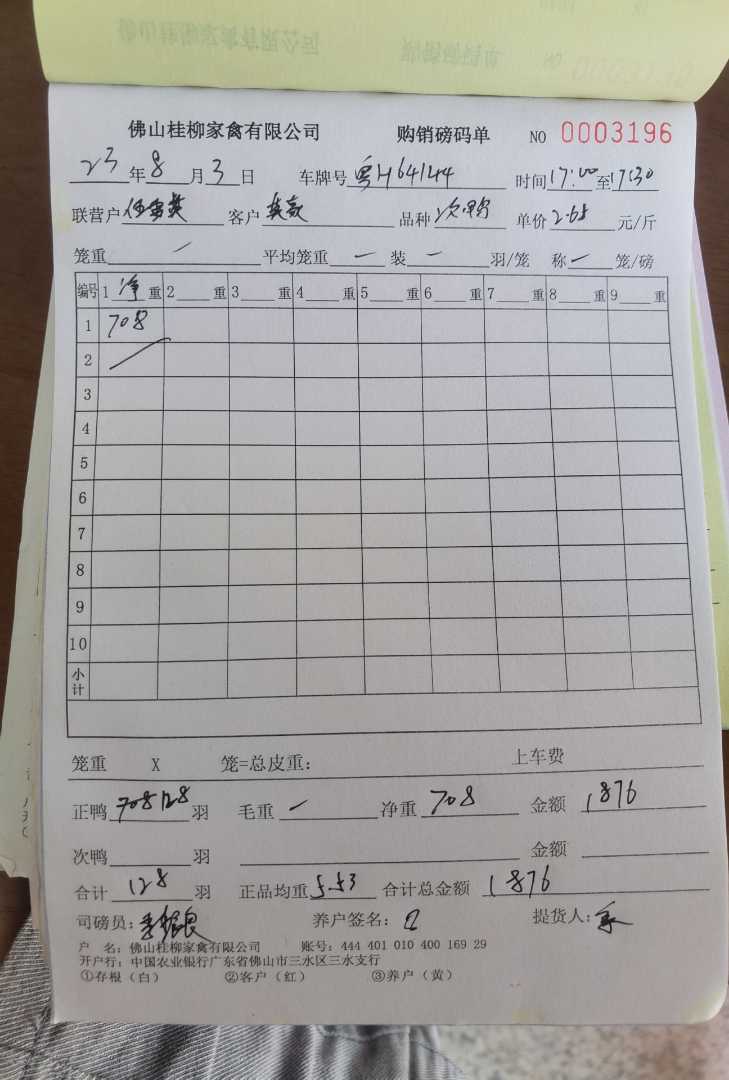 佛山桂柳家禽有限公司 购销磅码单 NO 0003196
23年8月3日 车牌号粤H64144 时间17:00至17:30
联营户 客户 品种次鸭 单价2.65元/斤
笼重/ 平均笼重一装一羽/笼 称一笼/磅
编号 1净重 2重 3重 4重 5重 6重 7重 8重 9重
1 708
2
3
4
5
6
7
8
9
10
小计
笼重 X 笼=总皮重: 上车费
正鸭128羽 毛重一 净重708 金额1876
次鸭羽 金额
合计128羽 正品均重5.53 合计总金额1876
司磅员: 养户签名: 提货人:
户 名: 佛山桂柳家禽有限公司 账号: 444 401 010 400 169 29
开户行: 中国农业银行广东省佛山市三水区三水支行
①存根(白) ②客户(红) ③养户(黄)